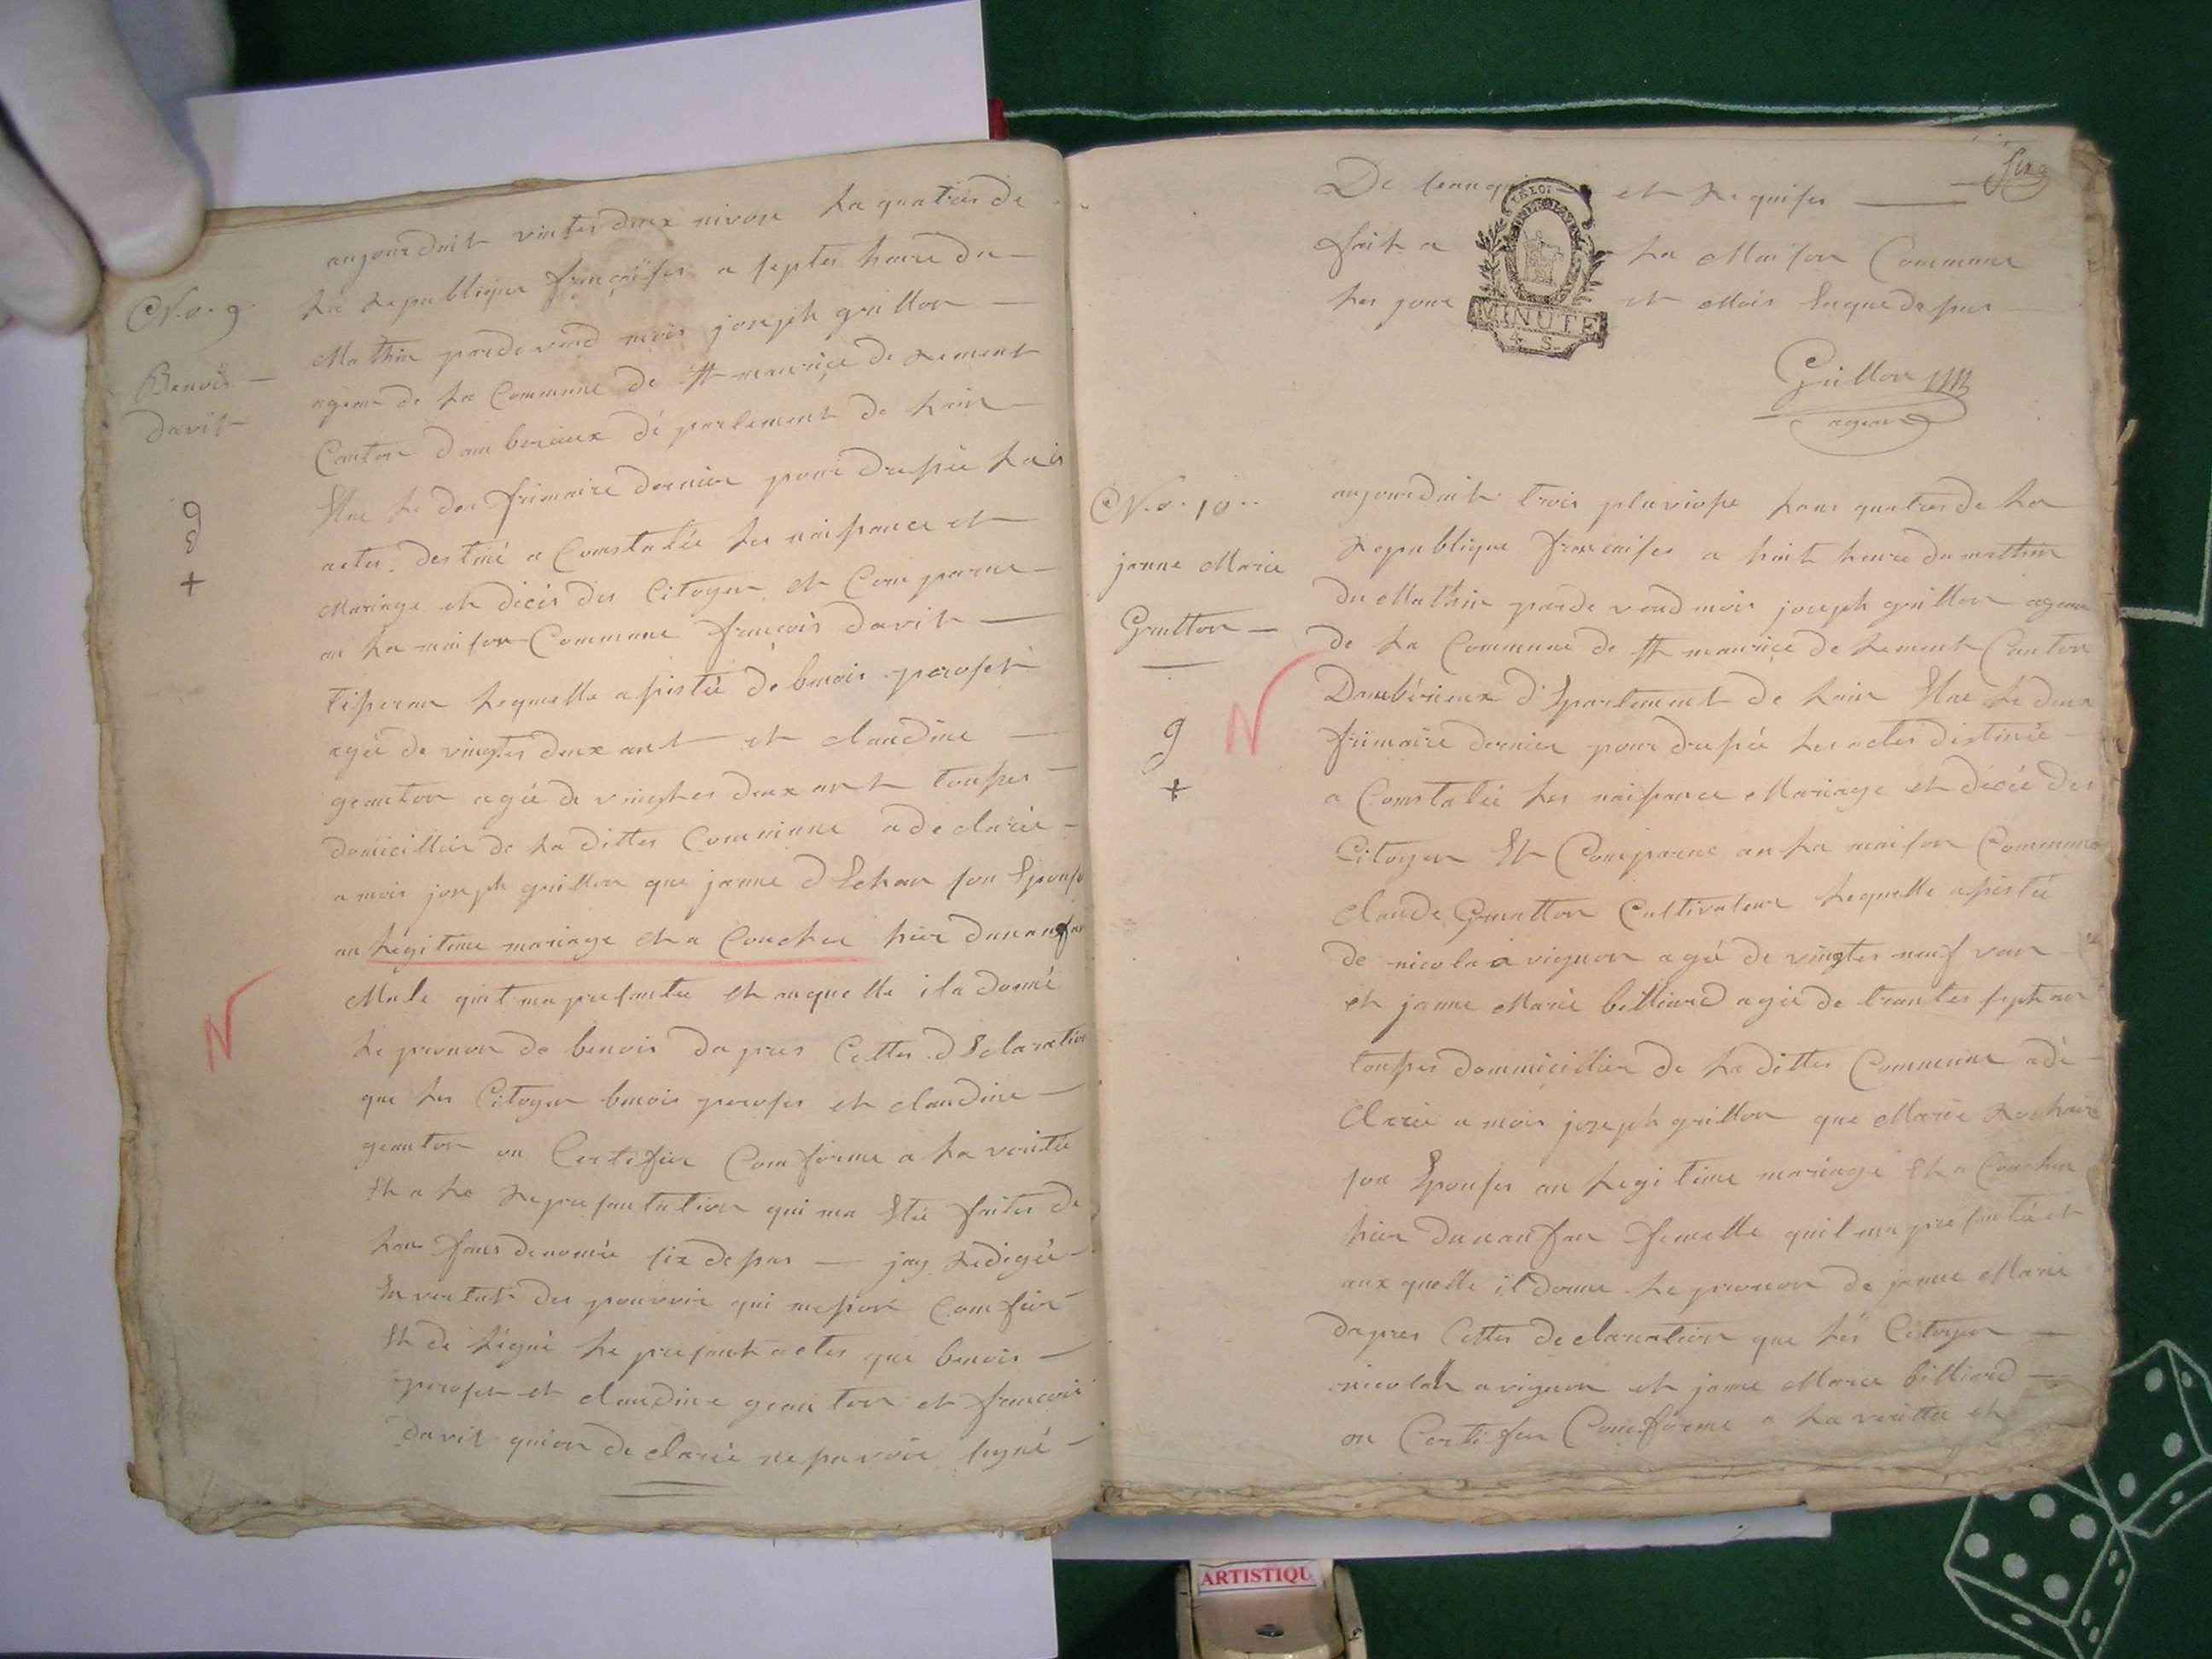 aujourduit vintes deux nivose La quatres de
La Republique françaises a septes heure du
Mathin pardevend mois joseph guillon
agean de La Commune de St maurice de Rement
Canton dambericux dé partement de Lain
Elue Le deu frimaire dernier pour dressée Les
actes destiné a Comstatée Les naissance et
Mariage et décés des Citoyen et Comparue
an La maison Commune françois davit
Tisseran Lequelle assistée de benois
agée de vingtes deux ant et claudine
geanton agée de vingtes deux ant tousses
domicillier de La dittes Commune a declarée
a mois joseph guillon que janne son Epouse
an Légitime mariage Et a Couchee hier dunanfan
Male quil ma presantee Et auquelle il a donné
Le prenon de benois dapres Cettes déclaration
que Les Citoyen benois et claudine
geanton on Certifier Comforme a La veritée
Et a La Represantation qui ma Etée faites de
Lan fans denomée six dessus jay Redigée
En vertut des pouvoir qui me sont Comfier
Et de signé Le presant actes que benois
et claudine geanton et francois
davit quion declarée ne pavoir signé
N.o. 9.
Benois
davit
9
+
N
De et Requises
fait a La Maison Commune
Les jour et Mois Eque dessus
MINUTE
4 S.
Guillon
agean
N.o. 10
janne Marie
Gruatton
9
+
N
aujourduit trois pluviose Lans quatres de La
Republique francaises a huit heure du matthin
du Mathin pardevend mois joseph guillon agean
de La Commune de St maurice de Rement Canton
Dambérieux dEpartement de Lain Elue Le deux
frimaire dernier pour dressée Les actes distinée
a Comstatée Les naissance Mariage et décée des
Citoyen Et Comparue an La maison Commune
claude Gruatton Cultivateur Lequelle assistée
de nicola avignon agée de vingtes neuf
et janne Marie billiard agée de trantes sept an
tousses dommicillier de La dittes Commune adé
Clarée a mois joseph guillon que Marie
son Epouses an Legitime mariage Et a Couchee
hier dunanfan femelle quil ma presantée et
aux quelle il donne Le prenon de janne Marie
dapres Cettes declaration que Les Citoyen
nicolah avignon et janne Marie billiard
on Certifier Comforme a La verittee et